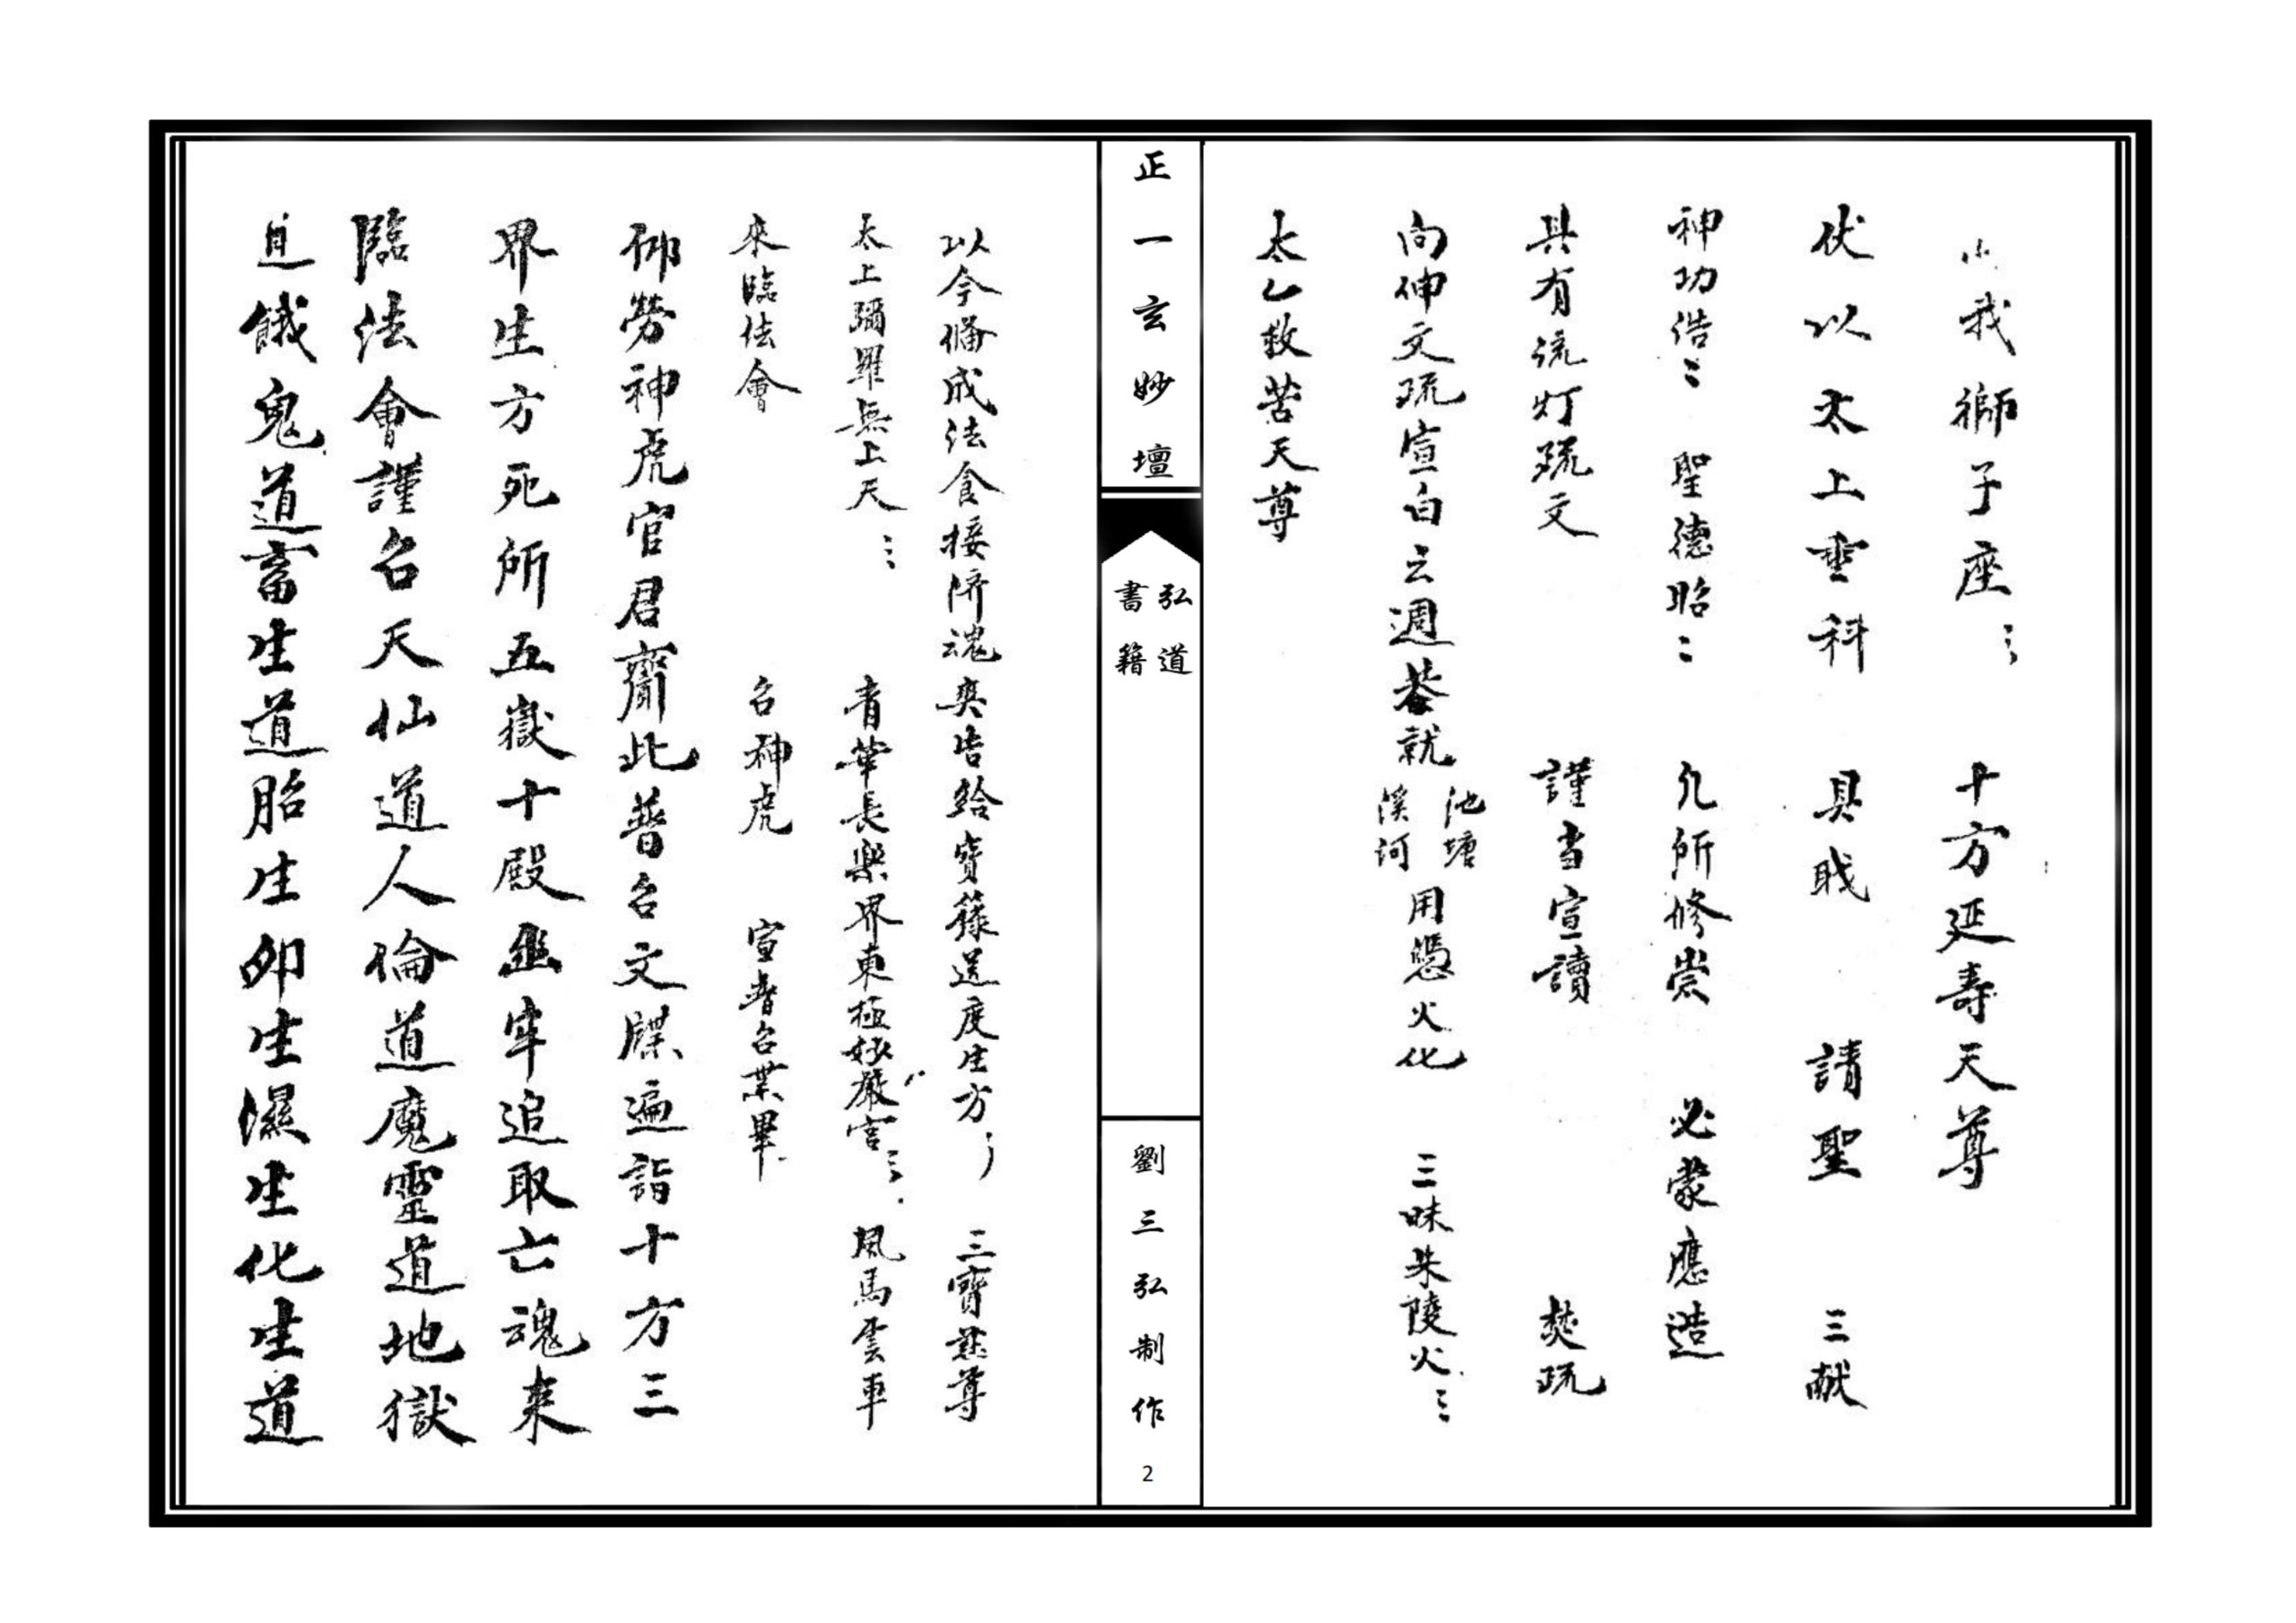 小我獅子座⺀⺀ 十方延壽天尊
伏以太上灵科 具職 請聖 三献
神功浩⺀ 聖德昭⺀ 凡所修崇 必蒙應造
具有流灯疏文 謹当宣讀 焚疏
向伸文疏宣白云週荅就池塘溪河用憑火化 三昧朱陵火⺀⺀
太乙救苦天尊
正一玄妙壇
弘道書籍
劉三弘制作
2
以今俻成法食接济魂奥告給寶籙送度生方 三寶慈尊
太上彌羅無上天⺀⺀ 青華長樂界東極妙嚴宫⺀⺀ 風馬雲車
來臨法會 召神虎 宣普召業畢
仰勞神虎官君齎此普召文牒遍詣十方三
界生方死所五嶽十殿幽牢追取亡魂来
臨法會謹召天仙道人倫道魔靈道地獄
道餓鬼道畜生道胎生卵生濕生化生道